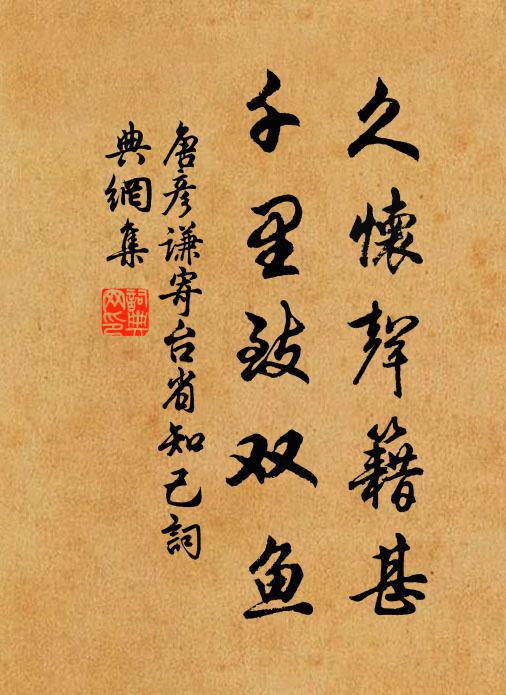 久懷聲籍甚
千里致双鱼
唐彦谦寄台省知己詞
典網集
詞典網印